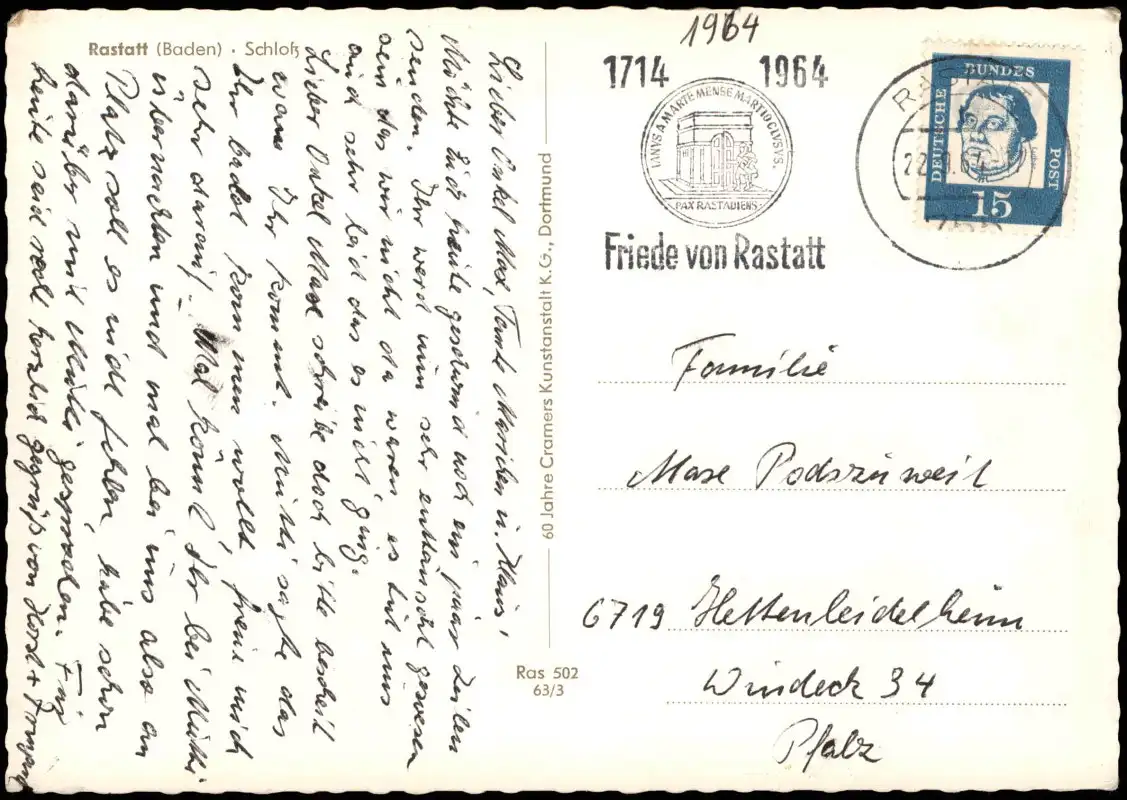 1964
Rastatt (Baden) · Schloß
Lieber Onkel Max, Tante Mariechen u. Klaus,
Möchte Euch heute geschwind noch ein paar Zeilen
senden. Ihr werd nun sehr enttäuscht gewesen
sein das wir nicht da waren, es tut uns
auch sehr leid das es nicht ging.
Lieber Onkel Max schreibe doch bitte bescheit
wann Ihr kommt. Mutti sagte das
Ihr bald kommen wollt, freue mich
sehr darauf. Mal könnt Ihr bei Mutti
übernachten und mal bei uns also an
Platz soll es nicht fehlen, habe schon
darüber mit Mutti gesprochen. Für
heute seid recht herzlich gegrüßt von Horst +
60 Jahre Cramers Kunstanstalt K.G., Dortmund
Ras 502
63/3
1714 1964
IANVS A MARTE MENSE MARTIO CLVSVS.
PAX RASTADIENS.
Friede von Rastatt
RASTATT
DEUTSCHE BUNDES POST
15
Familie
Max Podszuweit
6719 Hettenleidelheim
Windeck 34
Pfalz